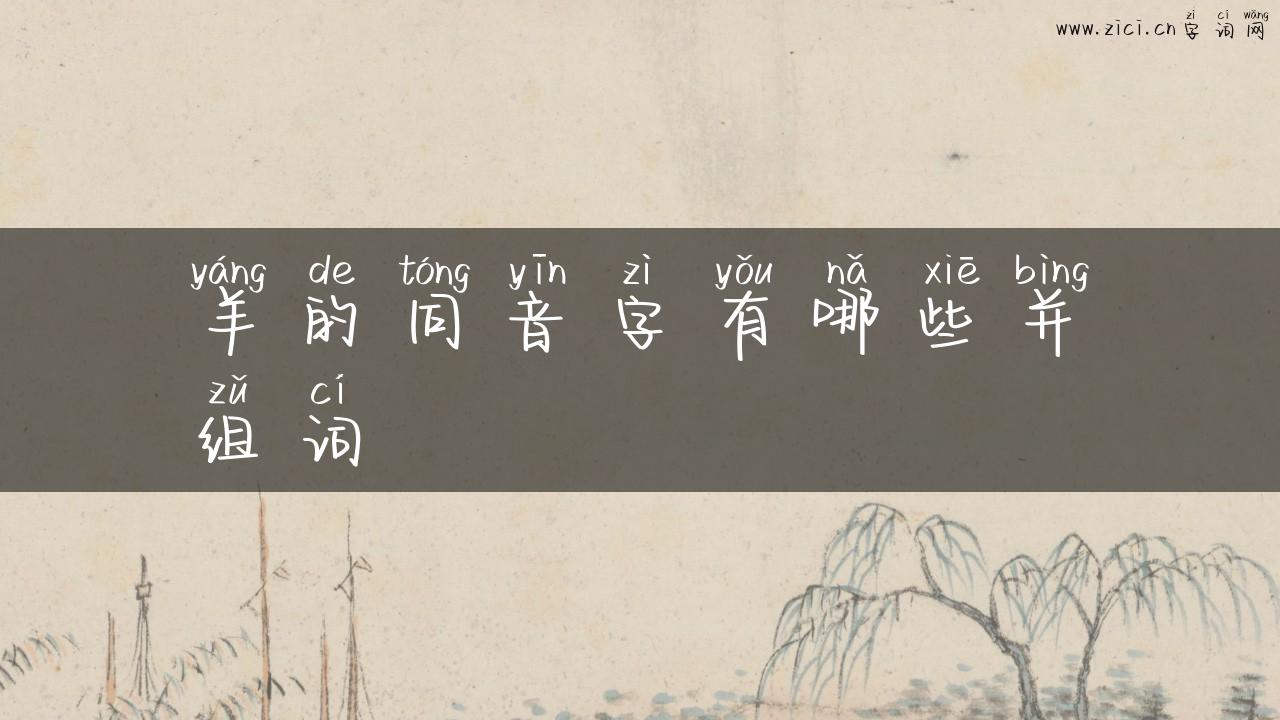 zì cí wǎng
www.zici.cn 字词网
yáng de tóng yīn zì yǒu nǎ xiē bìng
羊的同音字有哪些并
zǔ cí
组词